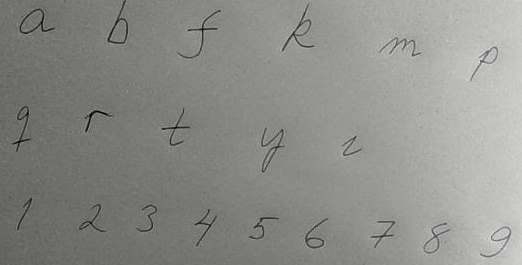 a b f k m p
q r t y z
1 2 3 4 5 6 7 8 9